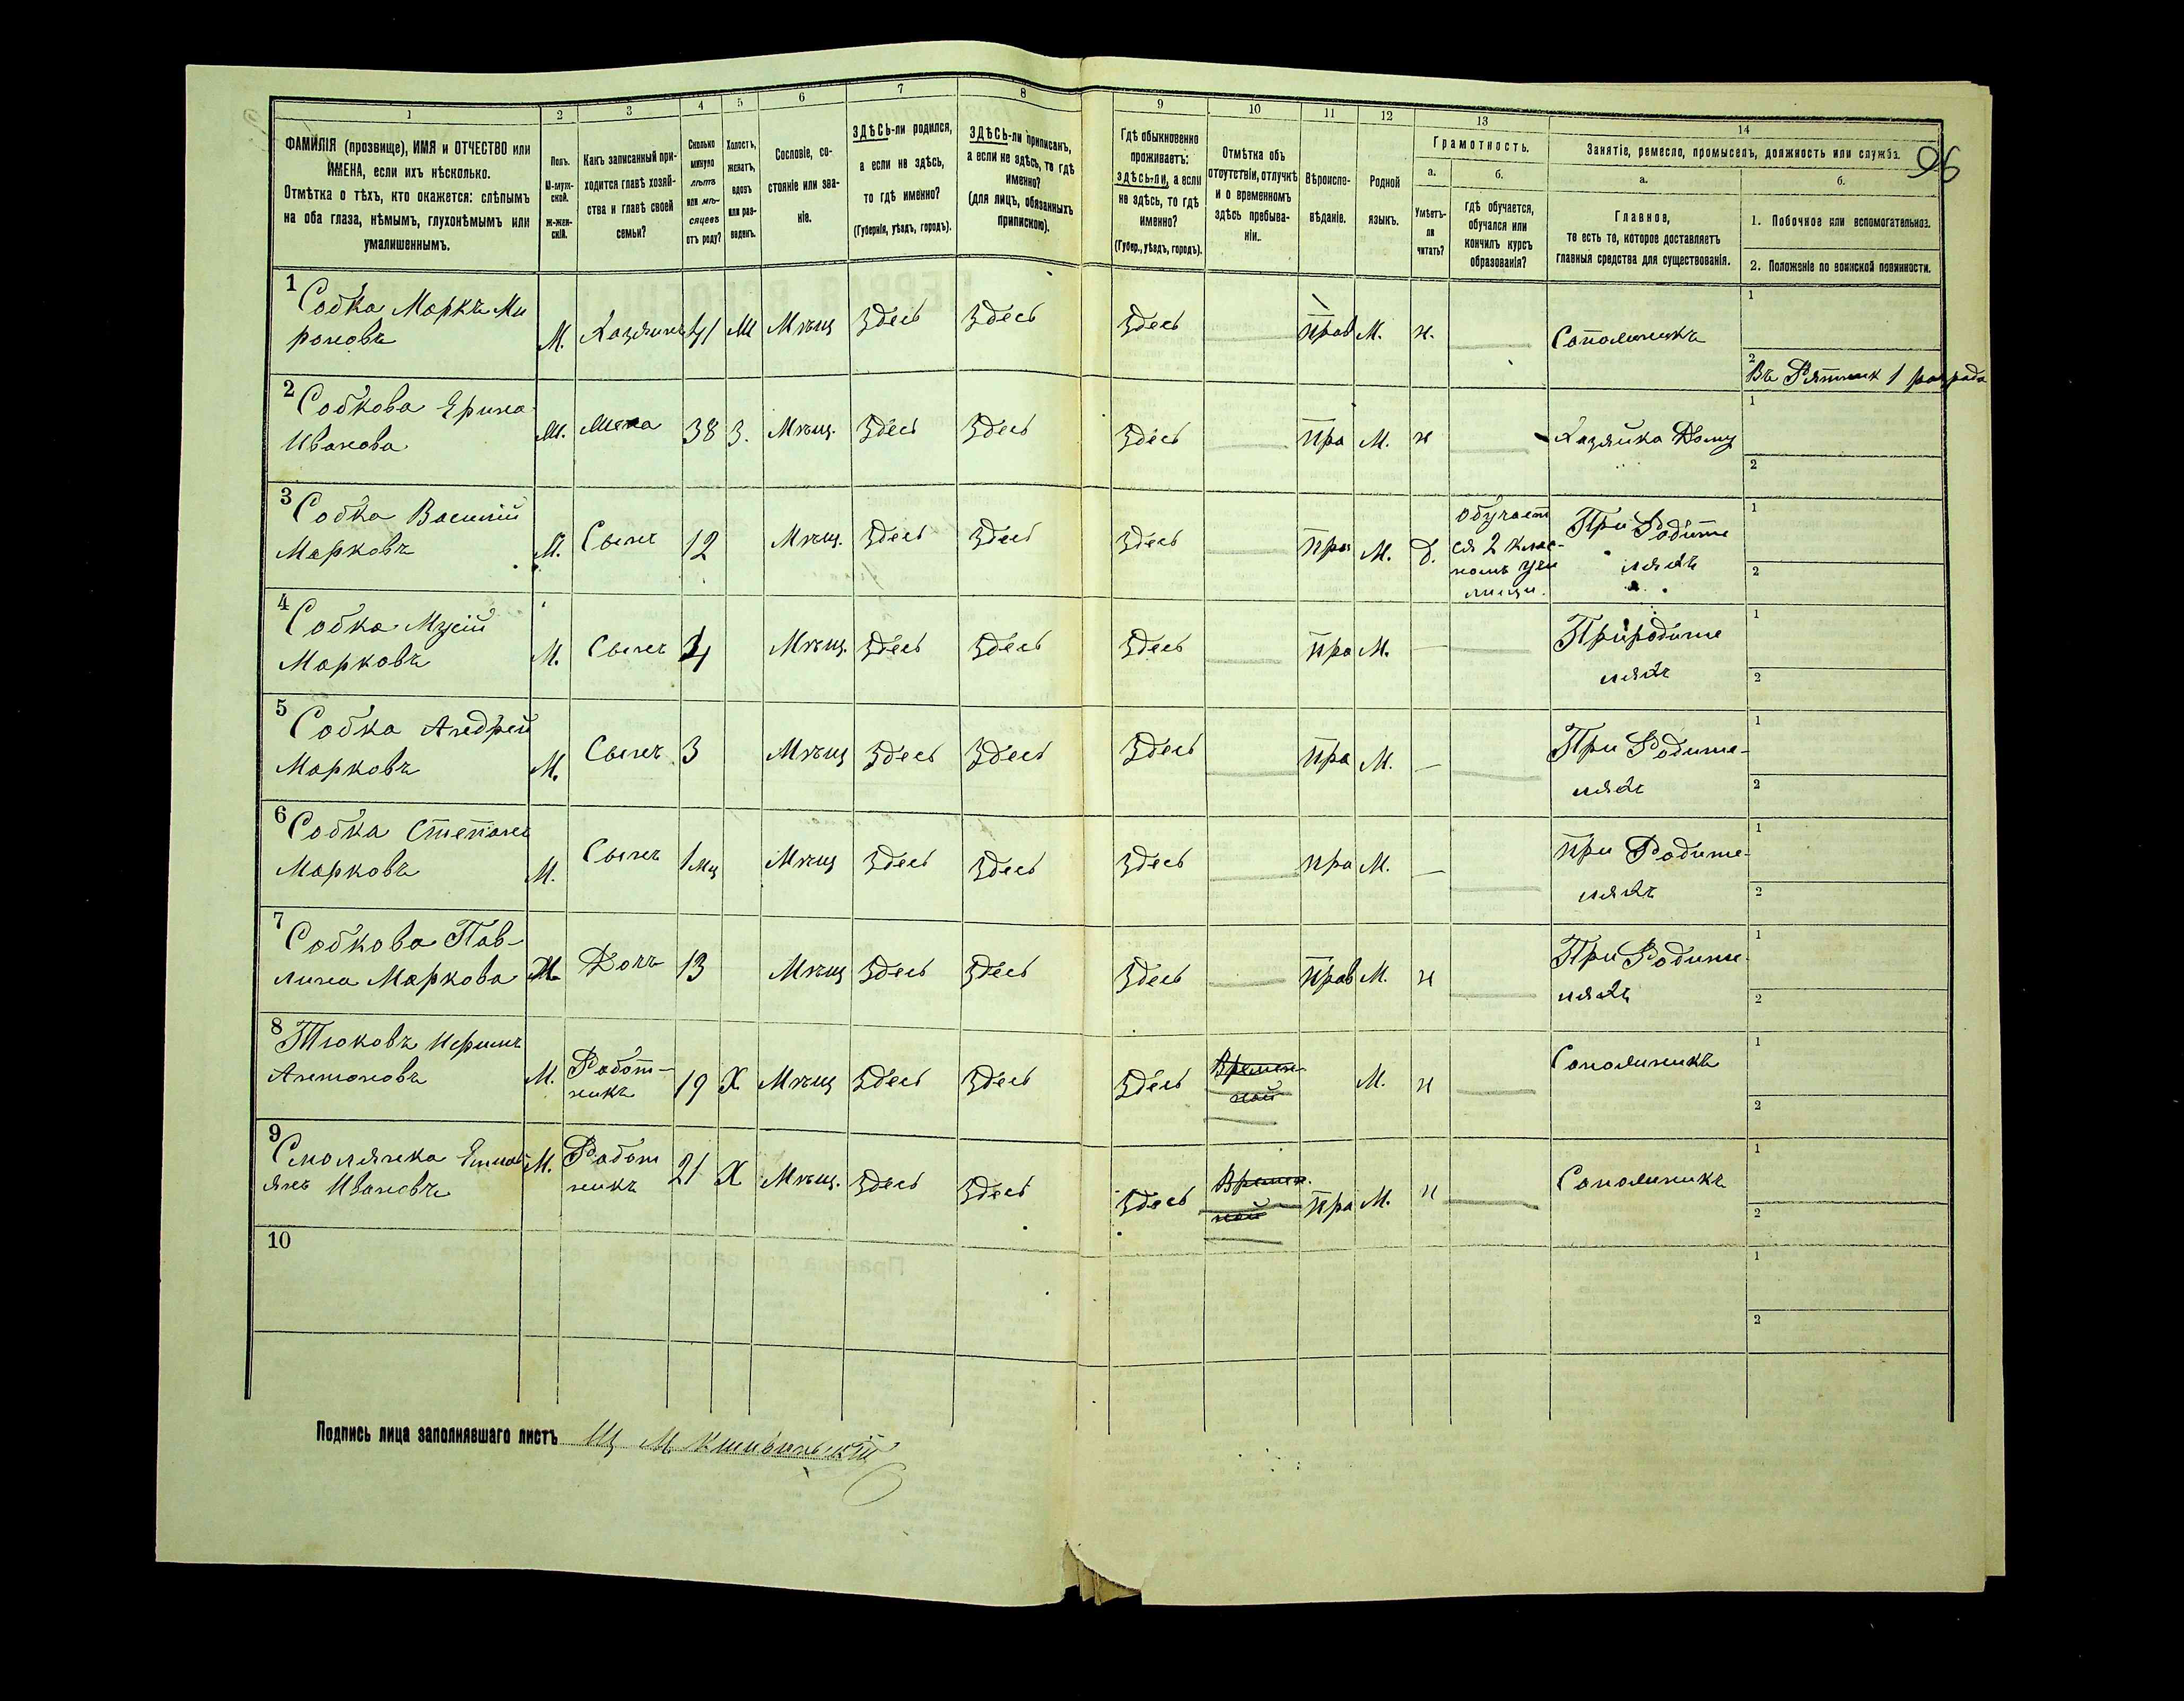 1 2 3 4 5 6 7 8 9 10 11 12 13 14
96
ФАМИЛІЯ (прозвище), ИМЯ и ОТЧЕСТВО или
ИМЕНА, если ихъ нѣсколько.
Отмѣтка о тѣхъ, кто окажется: слѣпымъ
на оба глаза, нѣмымъ, глухонѣмымъ или
умалишеннымъ.
Полъ.
М-муж-
ской.
Ж-жен-
скій.
Какъ записанный при-
ходится главѣ хозяй-
ства и главѣ своей
семьи?
Сколько
минуло
лѣтъ
или мѣ-
сяцевъ
отъ роду?
Холостъ,
женатъ,
вдовъ
или раз-
веденъ.
Сословіе, со-
стояніе или зва-
ніе.
ЗДѢСЬ-ли родился,
а если не здѣсь,
то гдѣ именно?
(Губернія, уѣздъ, городъ).
ЗДѢСЬ-ли приписан,
а если не здѣсь, то гдѣ
именно?
(для лицъ, обязанныхъ
припискою).
Гдѣ обыкновенно
проживаетъ:
здѣсь-ли, а если
не здѣсь, то гдѣ
именно?
(Губер., уѣздъ, городъ).
Отмѣтка объ
отсутствіи, отлучкѣ
и о временномъ
здѣсь пребыва-
ніи.
Вѣроиспо-
вѣданіе.
Родной
языкъ.
Грамотность.
а.
Умѣетъ-
ли
читать?
б.
гдѣ обучается,
обучался или
кончилъ курсъ
образованія?
Занятіе, ремесло, промыселъ, должность или служба.
а.
Главное,
то есть то, которое доставляетъ
главныя средства для существованія.
б.
1. Побочное или вспомогательноз.
2. Положеніе по воинской повинности.
1 Собка Маркъ Ми
роновъ М. Хазяинъ 41 Ж Мѣщ Здесь Здесь Здесь прав М. н. Саполжникъ 1
2 Въ 1 разрада
2 Собкова Ерина
Иванова Жена 38 З. Мѣщ. Здесь Здесь Здесь пра М. н Хазяйка Дому 1
2
3 Собка Василій
Марковъ М. Сынъ 12 Мѣщ. Здесь Здесь Здесь пра М. д.
Обучает
ся 2 клас-
номъ учи
лищи.
При Родите
ляхъ 1
2
4 Собка Мусій
Марковъ М. Сынъ 4 Мѣщ. Здесь Здесь Здесь пра М. —
При родите
ляхъ 1
2
5 Собка Андрей
Марковъ М. Сынъ 3 Мѣщ Здесь Здесь Здесь пра М. —
При Родите-
ляхъ 1
2
6 Собка Степанъ
Марковъ М. Сынъ 1 мц Мѣщ Здесь Здесь Здесь пра М. —
при Родите-
ляхъ 1
2
7 Собкова Пав-
лина Маркова Ж. Дочь 13 Мѣщ Здесь Здесь Здесь прав М. н
При Родите-
ляхъ 1
2
8 Тюковъ
Антоновъ М. Работ-
никъ 19 Х Мѣщ Здесь Здесь Здесь Времен-
ной М. н Саполжникъ 1
2
9 Смолянка
Ивановъ М. Работ
никъ 21 Х Мѣщ. Здесь Здесь Здесь Времен.
ной пра М. н Саполжникъ 1
2
10 1
2
Подпись лица заполнявшаго листъ